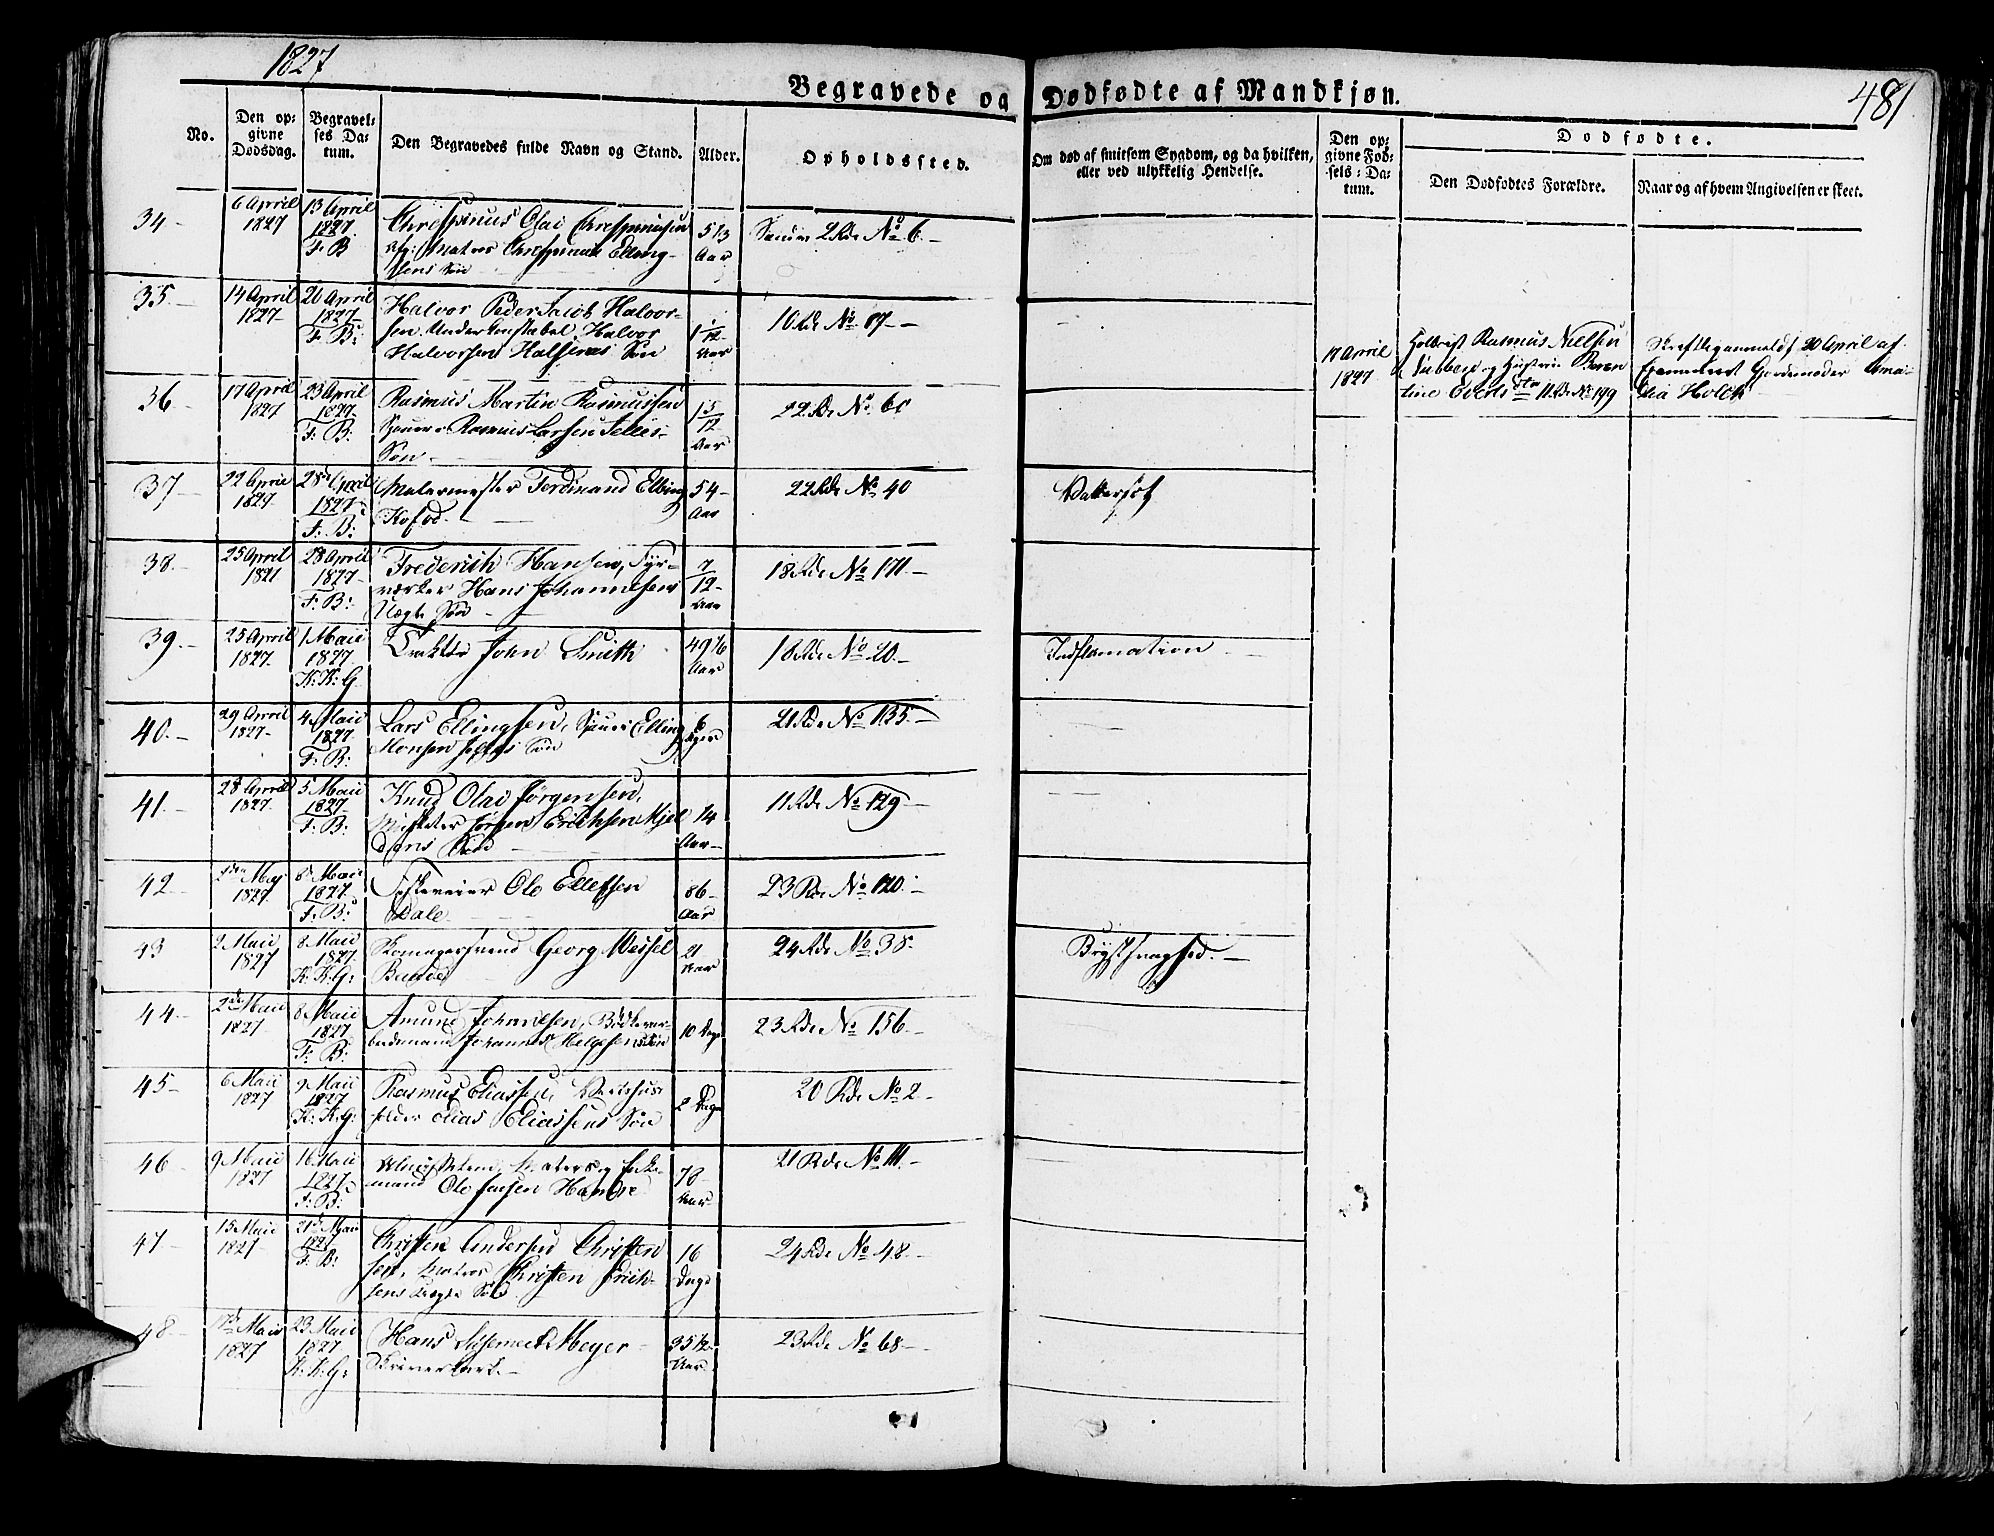 1827
481
Begravede og Dødfødte af Mandkjøn.
No.
Den opgivne Dødsdag.
Begravelses Datum.
Den Begravedes fulde Navn og Stand.
Alder.
Opholdssted.
Om død af smitsom Sygdom, og da hvilken, eller ved ulykkelig Hendelse.
Den opgivne Fødsels-Datum.
Dødfødte.
Den Dødfødtes Forældre.
Naar og af hvem Angivelsen er skeet.
34 6 April 1827 13 April 1827 F: B Chrispinus Olai Chrispinusen
Matros Chrispinus Ellingsens Søn Aar 2 Rde No 6
35. 14 April 1827 20 April 1827 F: B: Halvor Peder Jacob Halvorsen. Underconstabel Halvor
Halvorsen Halsenes Søn 1 1/12 Aar 16 Rde No 87
17 April 1827 Rasmus Nielsen
og Hustrue Beren
tine Everts 11 Rde No 199
Skreftlig anmeldt 20 April af
Examineret Gjordemoder Amalia Holck
36 17 April 1827 23 April 1827 F: B: Rasmus Martin Rasmussen
Rasmus Larsen
Søn 1 5/12 Aar 22 Rde No 65
37 22 April 1827 28 April 1827 F: B: Malermester Ferdinand Elling
Kofod 54 Aar 22 Rde No 40 Vattersot
38. 25 April 1827 28 April 1827 F: B: Frederich Hansen, Fyrverker Hans Johannesens
Ægte Søn 7/12 Aar 18 Rde No 171
39. 25 April 1827 1 Maii 1827 K: K: G John Smith 49 1/6 Aar 18 Rde No 20 Inflamation
40. 29 April 1827 4 Maii 1827 F: B: Lars Ellingsen, Elling
Monsen Søn 6 Uger 21 Rde No 135
41. 28 April 1827 5 Maii 1827 F: B: Knud Olai Jørgensen,
Musketer Jørgen Erichsen Mjeldens Søn 14 Aar 11 Rde No 129
42 1827 8 Maii 1827 F: B: Ole Ellefsen
Dale 86 Aar 23 Rde No 120
43 2 Maii 1827 8 Maii 1827 K: K: G: Georg Wessel
21 Aar 24 Rde No 38 Brystsvaghed
44 2de Maii 1827 8 Maii 1827 F: B: Amund Johannesen,
Johannes Helgesens Søn 10 Dage 23 Rde No 156
45 6 Maii 1827 9 Maii 1827 K: K: G: Rasmus Eliassen, Vertshusholder Elias Eliassens Søn 2 Dage 20 Rde No 2
46 9 Maii 1827 16 Maii 1827 F: B: Matros og Enkemand Ole 78 Aar 21 Rde No 111
47 15 Maii 1827 21de Maii 1827 F: B: Christen Andersen Christensen, Matros Christen Erichsens uægte Søn 16 Dage 24 Rde No 48
48 Maii 1827 23 Maii 1827 K: K: G: Hans Meyer
35 1/2 Aar 23 Rde No 68